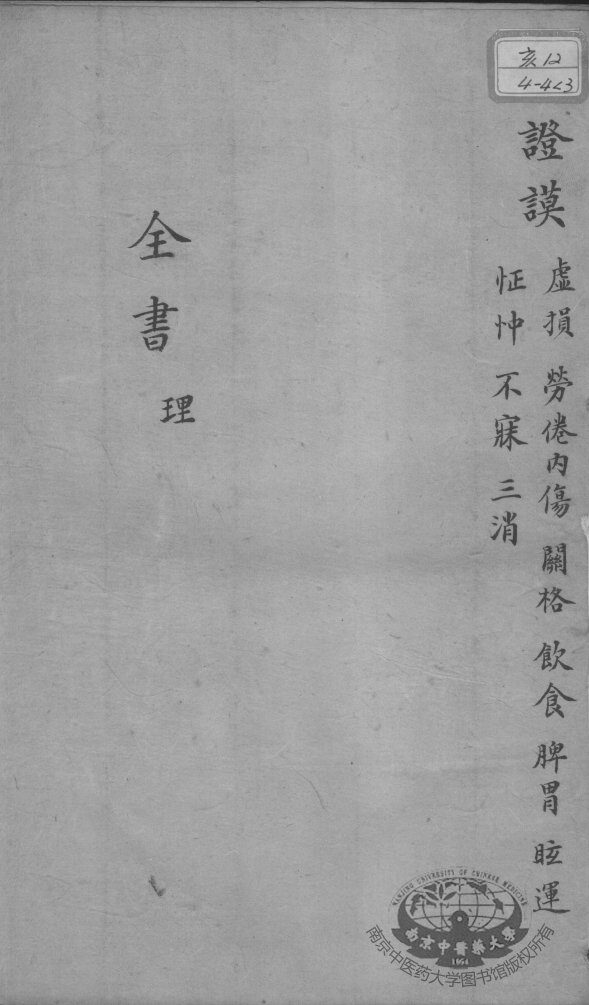 亥12
4-4<3
證謨
虛損 勞倦內傷 關格 飲食 脾胃 眩運
怔忡 不寐 三消
全書 理
NANJING UNIVERSITY OF CHINESE MEDICINE
南京中醫藥大學
1954
南京中医药大学图书馆版权所有